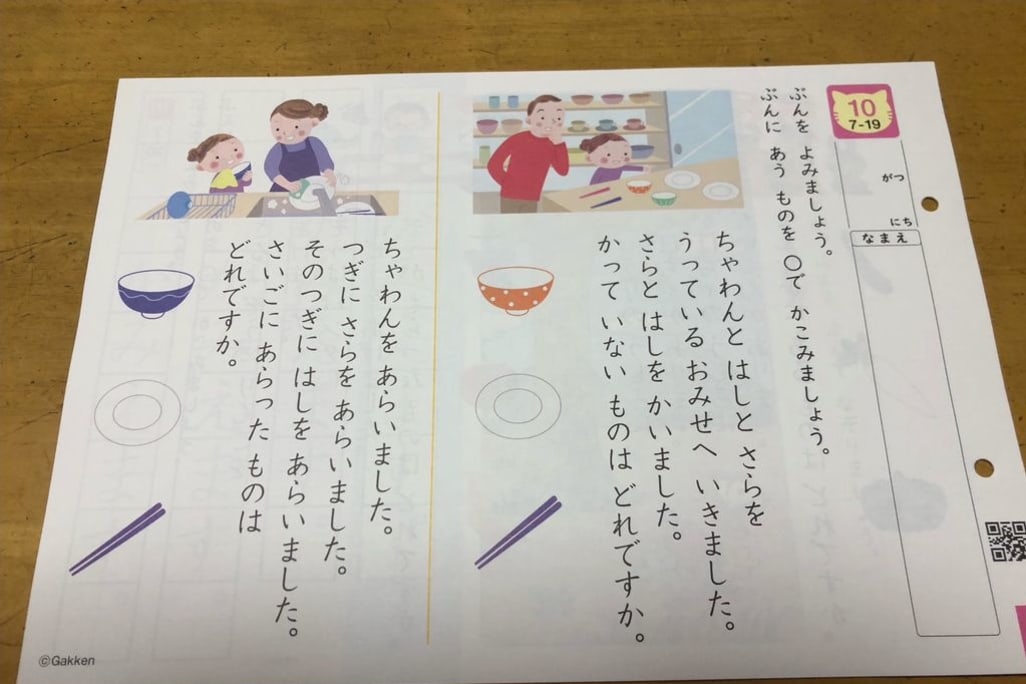 10
7-19
がつ
にち
なまえ
ぶんを よみましょう。
ぶんに あう ものを ○で かこみましょう。
ちゃわんと はしと さらを
うっている おみせへ いきました。
さらと はしを かいました。
かって いない ものは どれですか。
ちゃわんを あらいました。
つぎに さらを あらいました。
そのつぎに はしを あらいました。
さいごに あらった ものは
どれですか。
©Gakken